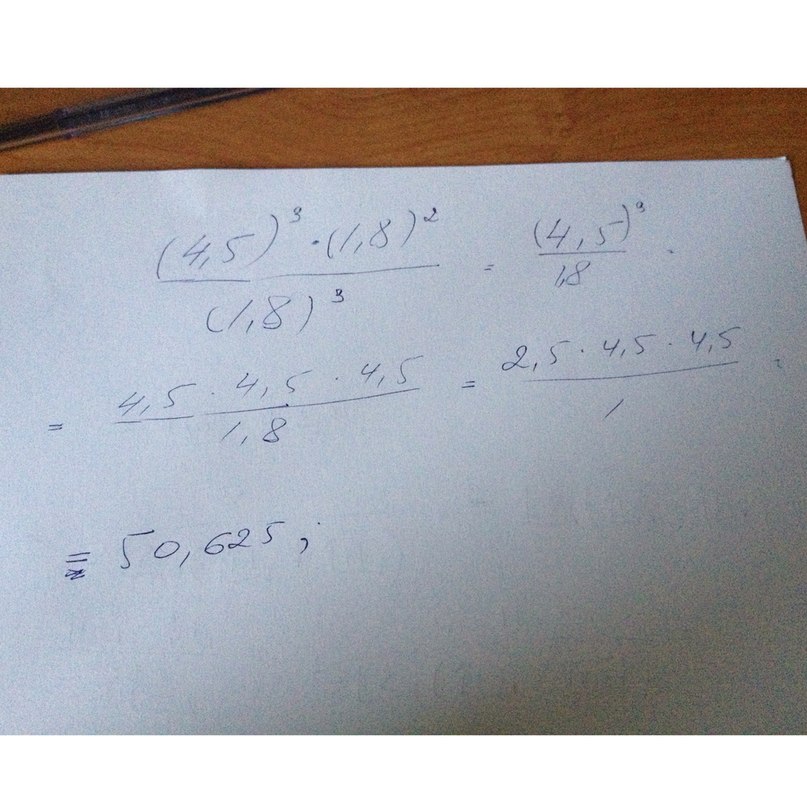 (4,5)³ · (1,8)² / (1,8)³ = (4,5)³ / 1,8 .
= 4,5 · 4,5 · 4,5 / 1,8 = 2,5 · 4,5 · 4,5 / 1 =
= 50,625;